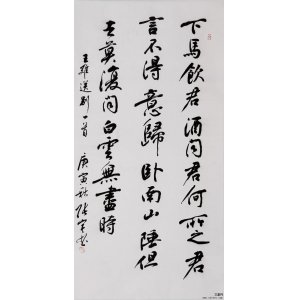 下馬飲君酒問君何所之君
言不得意歸卧南山陲但
去莫復問白雲無盡時
王維送別一首
庚寅秋張宇書